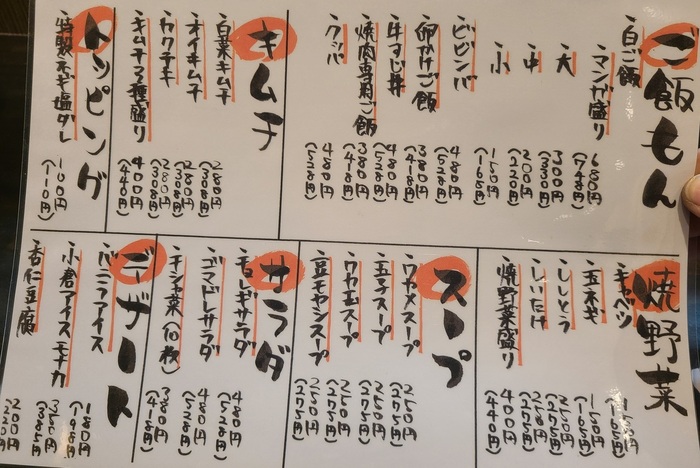 ご飯もん
白ご飯
マンガ盛り 680円(748円)
大 300円(330円)
中 200円(220円)
小 150円(165円)
ビビンバ 480円(528円)
卵かけご飯 380円(418円)
牛すじ丼 480円(528円)
焼肉専用ご飯 380円(418円)
クッパ 480円(528円)
キムチ
白菜キムチ 280円(308円)
オイキムチ 280円(308円)
カクテキ 280円(308円)
キムチ3種盛り 400円(440円)
トッピング
特製ネギ塩ダレ 100円(110円)
焼野菜
キャベツ 150円(165円)
玉ネギ 150円(165円)
ししとう 250円(275円)
しいたけ 250円(275円)
焼野菜盛り 400円(440円)
スープ
ワカメスープ 250円(275円)
玉子スープ 250円(275円)
ワカ玉スープ 250円(275円)
豆モヤシスープ 250円(275円)
サラダ
チョレギサラダ 480円(528円)
ゴマドレサラダ 480円(528円)
チシャ菜(10枚) 380円(418円)
デザート
バニラアイス 180円(198円)
小倉アイスモナカ 350円(385円)
杏仁豆腐 200円(220円)